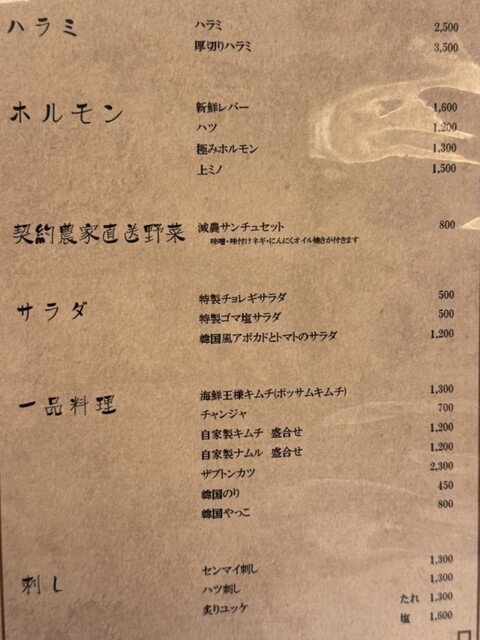 ハラミ
ハラミ 2,500
厚切りハラミ 3,500
ホルモン
新鮮レバー 1,600
ハツ 1,200
極みホルモン 1,300
上ミノ 1,500
契約農家直送野菜
減農サンチュセット 800
味噌・味付けネギ・にんにくオイル焼きが付きます
サラダ
特製チョレギサラダ 500
特製ゴマ塩サラダ 500
韓国風アボカドとトマトのサラダ 1,200
一品料理
海鮮王様キムチ(ポッサムキムチ) 1,300
チャンジャ 700
自家製キムチ 盛合せ 1,200
自家製ナムル 盛合せ 1,200
ザブトンカツ 2,300
韓国のり 450
韓国やっこ 800
刺し
センマイ刺し 1,300
ハツ刺し 1,300
炙りユッケ たれ 1,300
塩 1,600